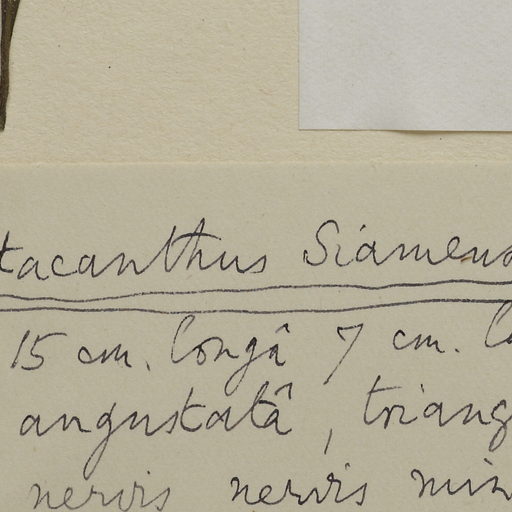 tacanthus Siamens
15 cm. longâ 7 cm. la
angustatâ, triang
nervis nervis min